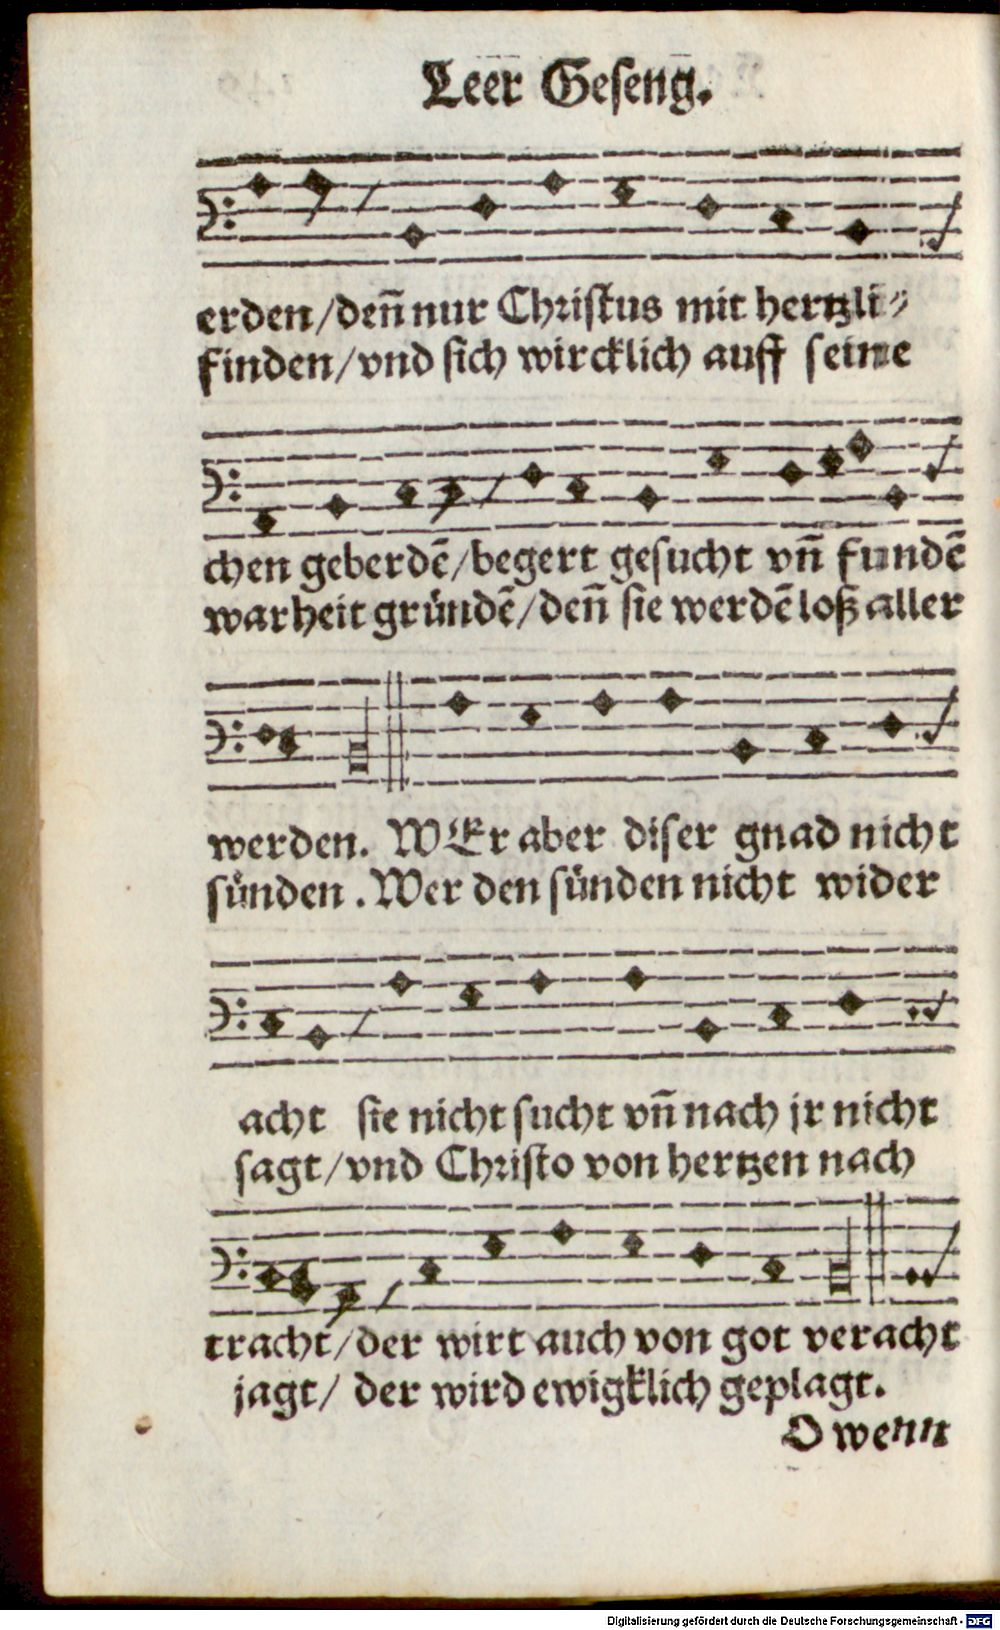 Leer Geseng.
erden/deñ nur Christus mit hertzli⸗
finden/vnd sich wircklich auff seine
chen geberdē/begert gesucht vñ fundē
warheit gründē/deñ sie werdē loß aller
werden. WEr aber diser gnad nicht
sünden. Wer den sünden nicht wider
acht sie nicht sucht vñ nach jr nicht
sagt/vnd Christo von hertzen nach
tracht/der wirt auch von got veracht
jagt/ der wird ewigklich geplagt.
O wenn
Digitalisierung gefördert durch die Deutsche Forschungsgemeinschaft - DFG